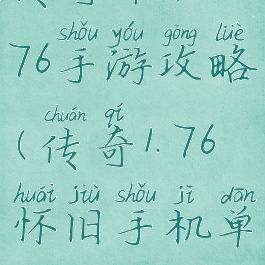 shǒu yóu gōng lüè
76手游攻略
chuán qí
(传奇1.76
huái jiù shǒu jī dān
怀旧手机单